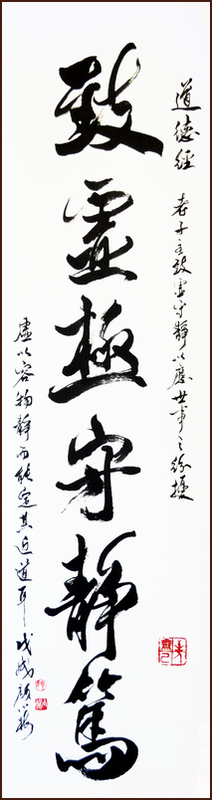 道德經 老子言致虛守靜以應世事之紛擾
致虛極守靜篤
虛以容物靜而能定其近道耳 戊戌